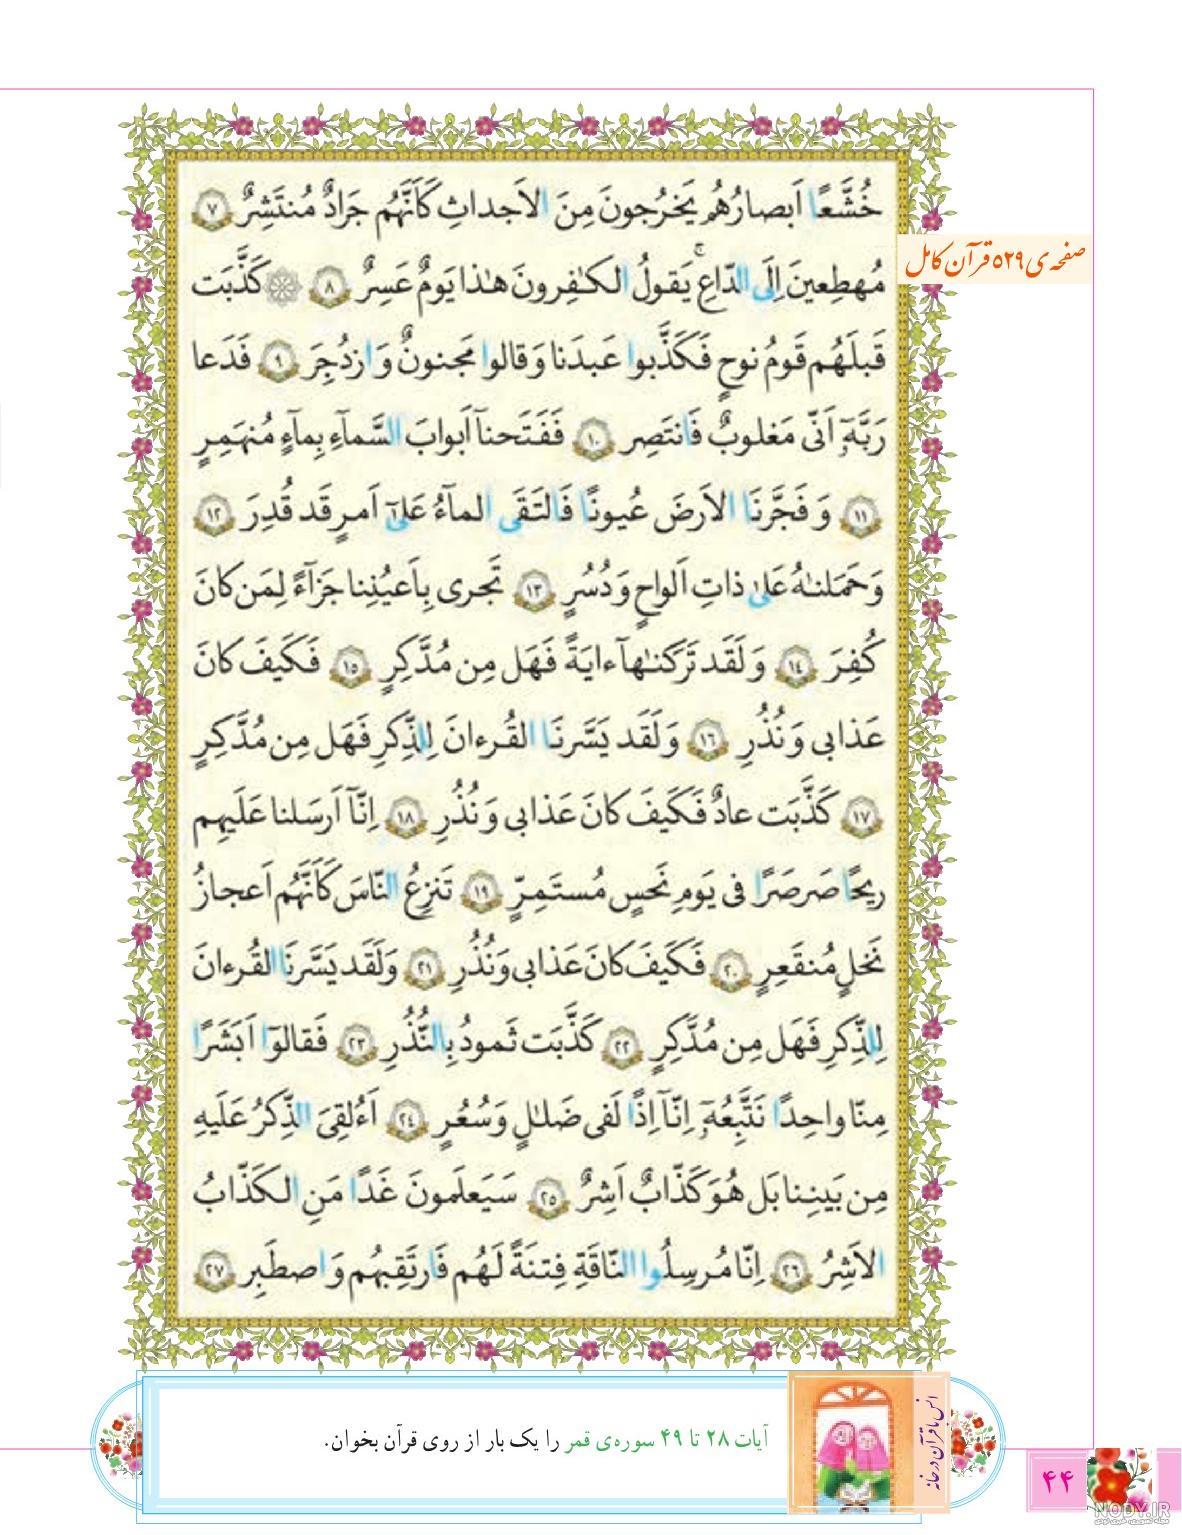 خُشَّعًا اَبصارُهُم يَخرُجونَ مِنَ الاَجداثِ كَاَنَّهُم جَرادٌ مُنتَشِرٌ ٧
صفحه‌ی ۵۲۹ قرآن کامل
مُهطِعينَ اِلَى الدّاعِ ۚ يَقولُ الكـٰفِرونَ هـٰذا يَومٌ عَسِرٌ ٨ ۞ كَذَّبَت
قَبلَهُم قَومُ نوحٍ فَكَذَّبوا عَبدَنا وَ قالوا مَجنونٌ وَ ازدُجِرَ ٩ فَدَعا
رَبَّهٗۤ اَنّى مَغلوبٌ فَانتَصِر ١٠ فَفَتَحنآ اَبوابَ السَّمآءِ بِمآءٍ مُنهَمِرٍ
١١ وَ فَجَّرنَا الاَرضَ عُيونًا فَالتَقَى المآءُ عَلىٰٓ اَمرٍ قَد قُدِرَ ١٢
وَ حَمَلنـٰهُ عَلىٰ ذاتِ اَلواحٍ وَ دُسُرٍ ١٣ تَجرى بِاَعيُنِنا جَزآءً لِمَن كانَ
كُفِرَ ١٤ وَ لَقَد تَرَكنـٰهآ ءايَةً فَهَل مِن مُدَّكِرٍ ١٥ فَكَيفَ كانَ
عَذابى وَ نُذُرِ ١٦ وَ لَقَد يَسَّرنَا القُرءانَ لِلذِّكرِ فَهَل مِن مُدَّكِرٍ
١٧ كَذَّبَت عادٌ فَكَيفَ كانَ عَذابى وَ نُذُرِ ١٨ اِنّآ اَرسَلنا عَلَيهِم
ريحًا صَرصَرًا فى يَومِ نَحسٍ مُستَمِرٍّ ١٩ تَنزِعُ النّاسَ كَاَنَّهُم اَعجازُ
نَخلٍ مُنقَعِرٍ ٢٠ فَكَيفَ كانَ عَذابى وَ نُذُرِ ٢١ وَ لَقَد يَسَّرنَا القُرءانَ
لِلذِّكرِ فَهَل مِن مُدَّكِرٍ ٢٢ كَذَّبَت ثَمودُ بِالنُّذُرِ ٢٣ فَقالوٓا اَبَشَرًا
مِنّا واحِدًا نَتَّبِعُهٗۤ اِنّآ اِذًا لَفى ضَلـٰلٍ وَ سُعُرٍ ٢٤ اَءُلقِىَ الذِّكرُ عَلَيهِ
مِن بَينِنا بَل هُوَ كَذّابٌ اَشِرٌ ٢٥ سَيَعلَمونَ غَدًا مَنِ الكَذّابُ
الاَشِرُ ٢٦ اِنّا مُرسِلُوا النّاقَةِ فِتنَةً لَهُم فَارتَقِبهُم وَ اصطَبِر ٢٧
انس با قرآن در خانه
آیات ۲۸ تا ۴۹ سوره‌ی قمر را یک بار از روی قرآن بخوان.
۴۴
NODY.IR